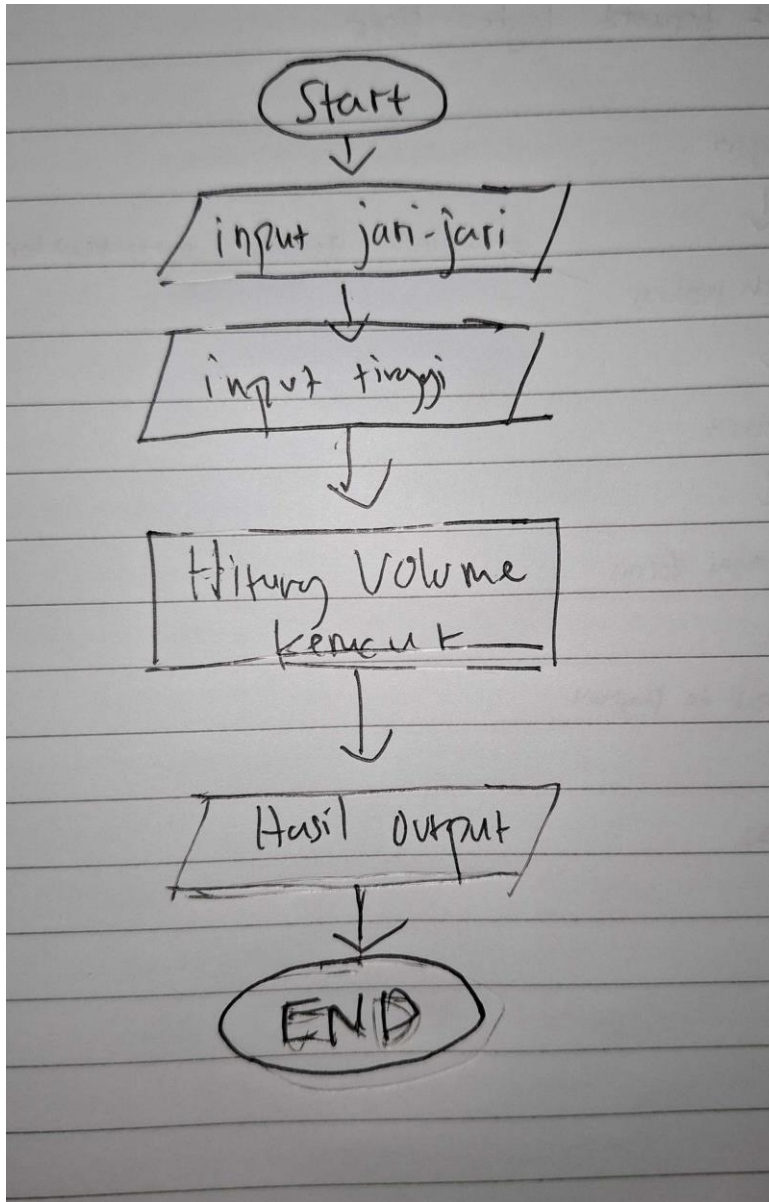 Start
input jari-jari
input tinggi
Hitung Volume
kerucut
Hasil Output
END